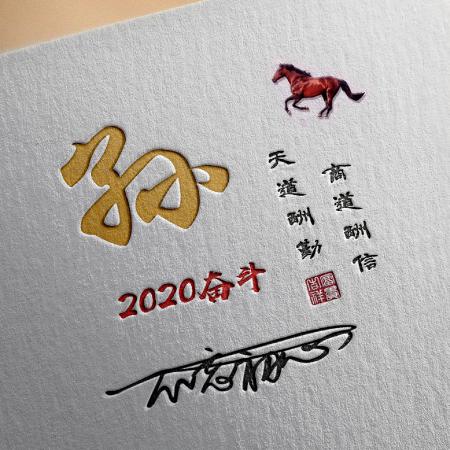 孙
商道酬信
天道酬勤
2020奋斗